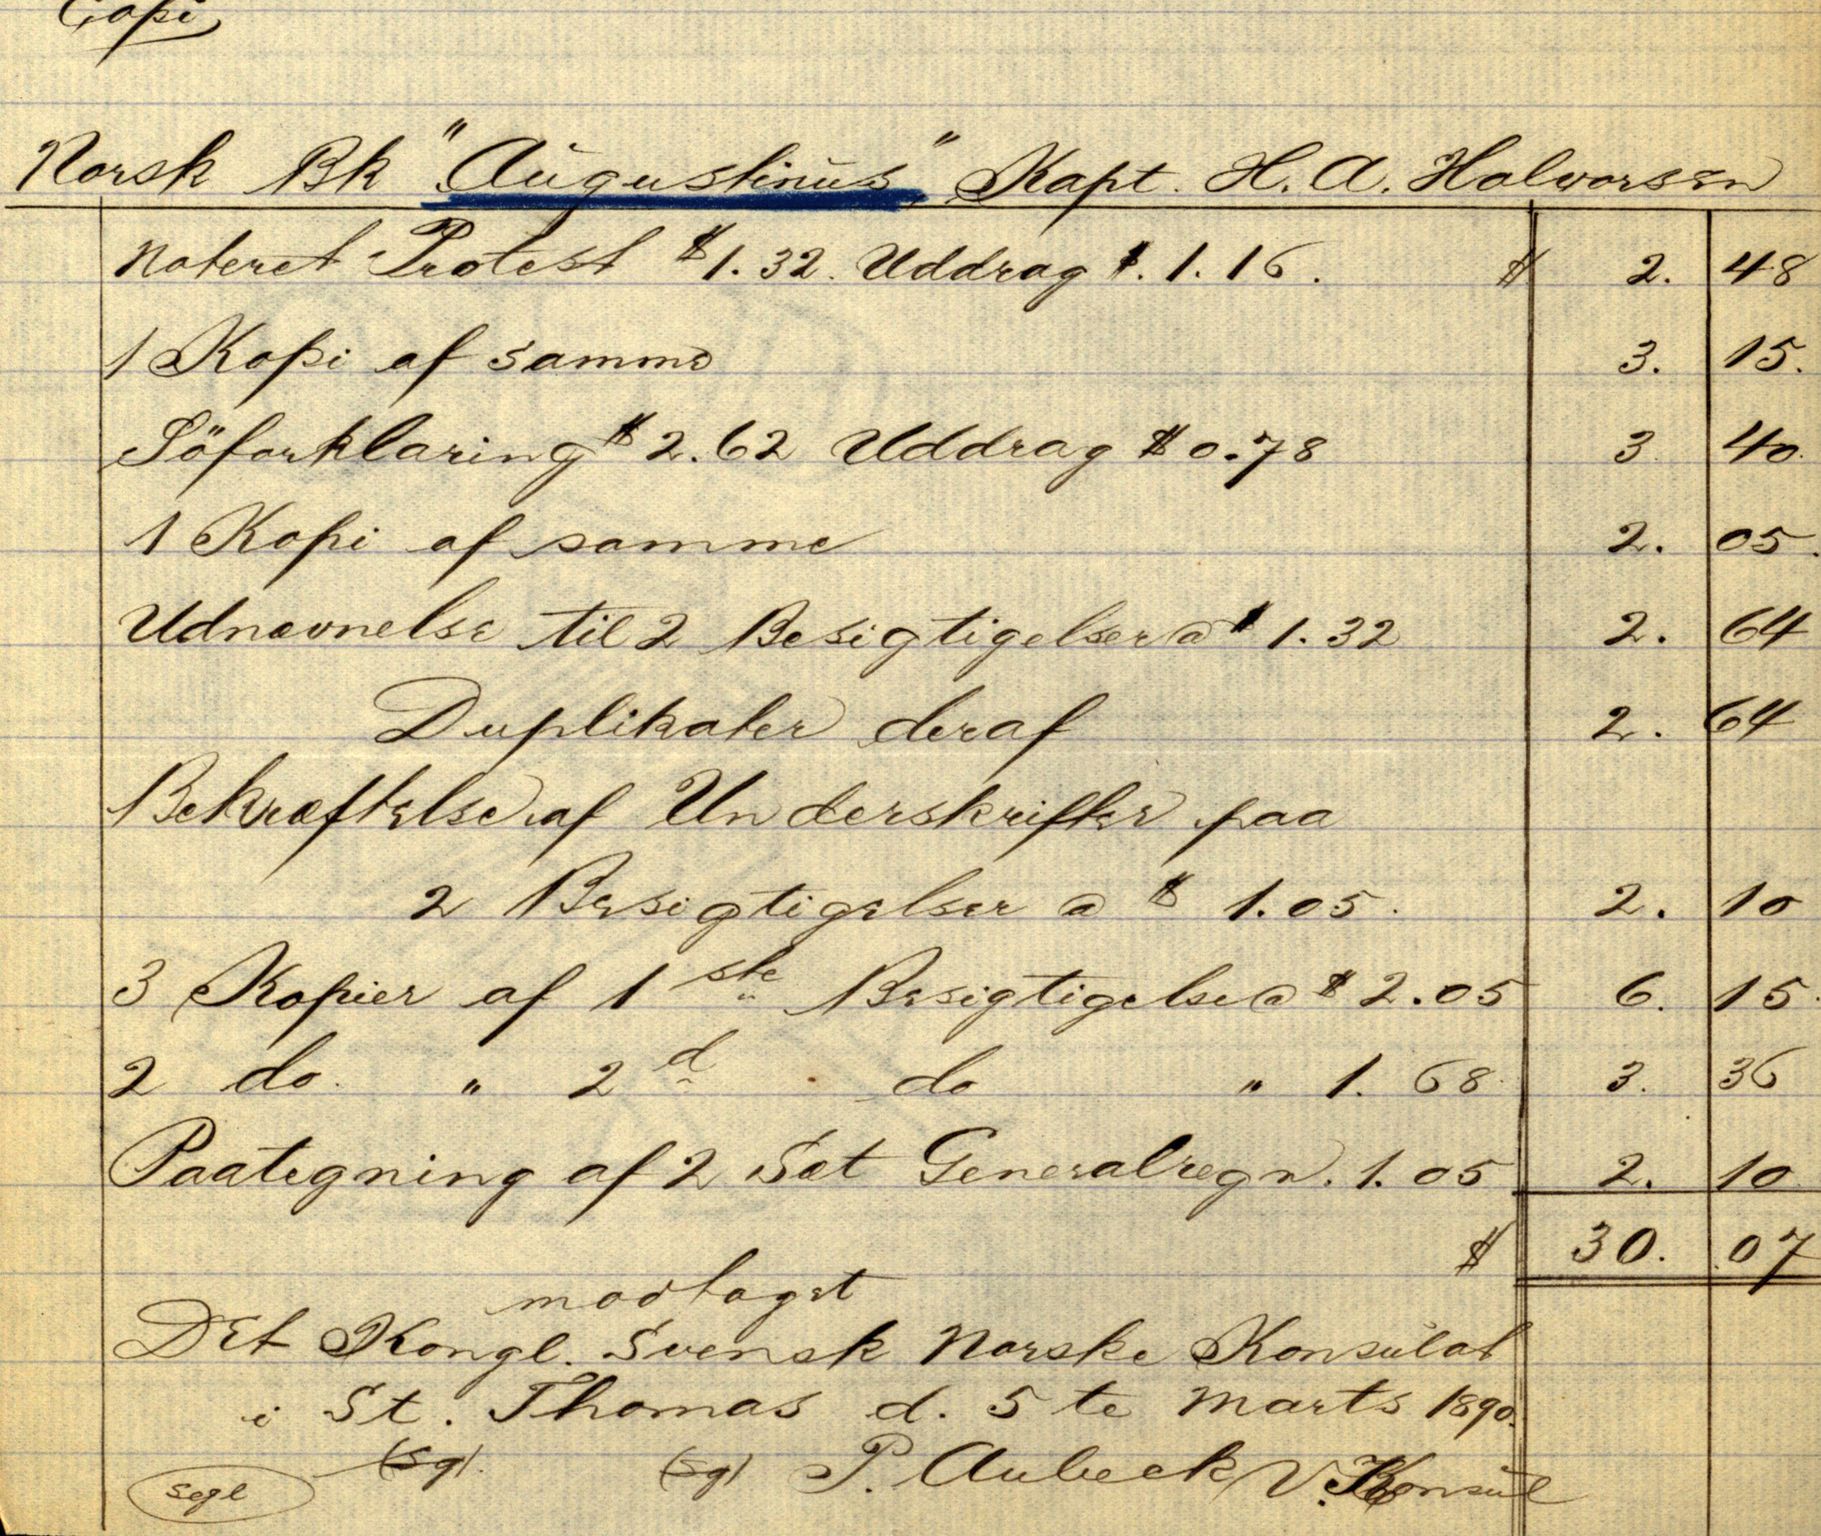 Copi
Norsk Bk "Augustinus" Kapt. H. A. Halvorsen
Noteret Protest $1.32. Uddrag $. 1.16. $ 2. 48
1 Kopi af samme 3. 15.
Söforklaring $2.62 Uddrag $0.78 3 40.
1 Kopi af samme 2. 05.
Udnævnelse til 2 Besigtigelser a $1.32 2. 64
Duplikater deraf 2. 64
Bekræftelse af Underskrifter paa
2 Besigtigelser a $ 1.05. 2. 10
3 Kopier af 1ste Besigtigelse a $2.05 6. 15.
2 do. " 2d do " 1.68. 3. 36
Paategning af 2 Sæt Generalregn. 1.05 2. 10
$ 30. 07
modtaget
Det Kongl. Svensk Norske Konsulat
i St. Thomas d. 5te Marts 1890.
(sg). (sg) P. Aubeck V. Konsul
segl